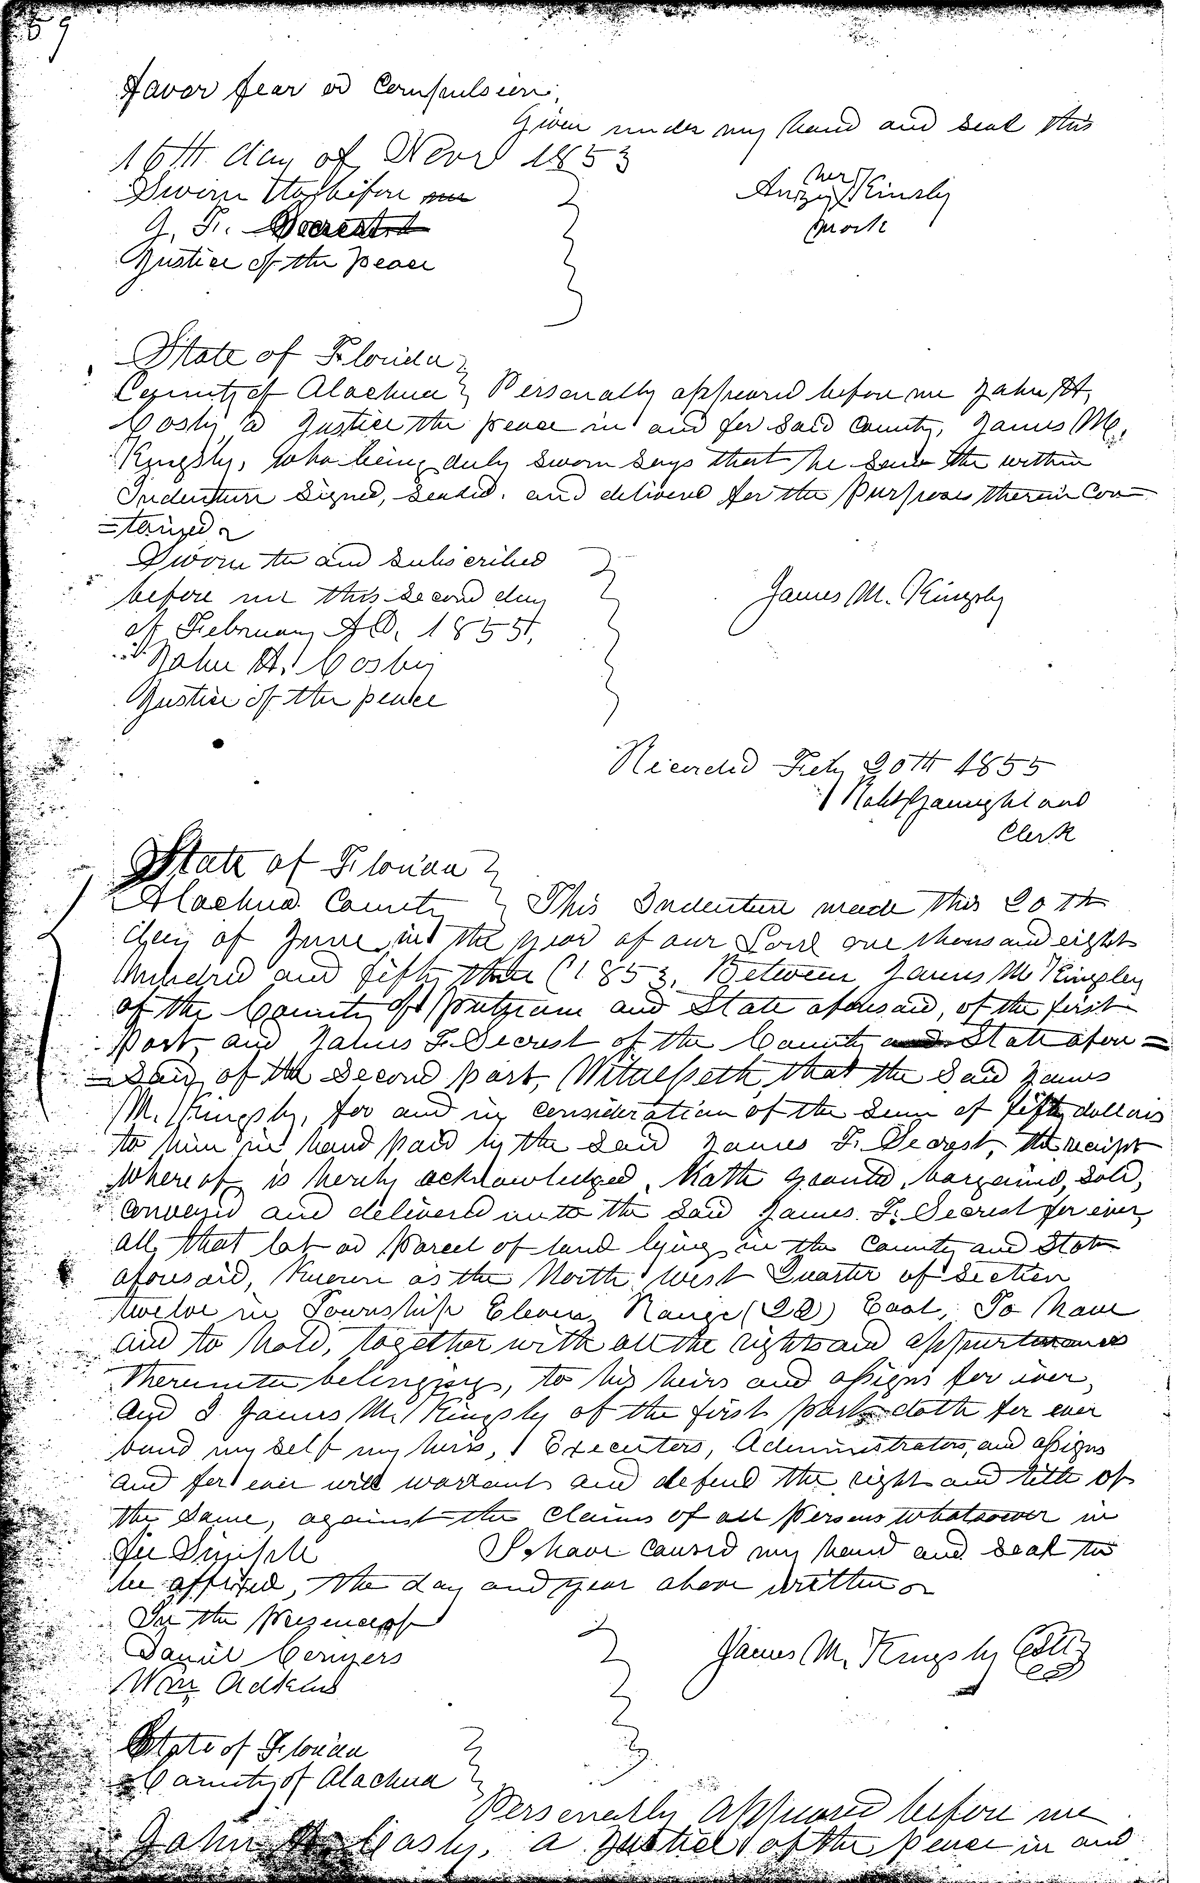 59
favor fear or Compulsion,
Given under my hand and seal this
16th day of Novr 1853
Sworn to before me
her
Kinsly
J. F.
mark
Justice of the peace
State of Florida
County of Alachua } Personally appeared before me John H.
Cosby, a Justice the peace in and for said County, James M.
Kingsly, who being duly sworn says that he saw the within
Indenture Signed, Sealed, and delivered for the Purposes therein Con=
=tained
Sworn to and subscribed
before me this second day
James M. Kingsly
of February AD, 1855,
John H. Cosby
Justice of the peace
Recorded Feby 20th 1855
Robt
Clerk
State of Florida
Alachua County } This Indenture made this 20th
day of June in the year of our Lord one thousand eight
hundred and fifty three (1853, Between James M Kingsley
of the County of Putnam and State aforesaid, of the first
Part, and James F. Secrest of the County and State afore=
=said of the Second part, Witnesseth, that the Said James
M. Kingsly, for and in consideration of the sum of fifty dollars
to him in hand paid by the said James F. Secrest, the receipt
whereof is hereby acknowledged, hath granted, bargained, Sold,
conveyed and delivered unto the said James F. Secrest for ever,
all that lot or Parcel of land lying in the County and State
aforesaid, Known as the North West Quarter of Section
twelve in Township Eleven Range (22) East, To have
and to hold, together with all the rights and appurtenances
thereunto belonging, to his heirs and assigns for ever,
And I James M. Kingsly of the first part doth for ever
bind my self my heirs, Executors, Administrators, and assigns
and for ever will warrant and defend the right and title of
the same, against the claims of all Persons whatsoever in
fee Simple I have caused my hand and seal to
be affixed, the day and year above written
In the presence of
Daniel Conyers
James M. Kingsly
Wm Adkins
State of Florida
County of Alachua
Personally appeared before me
John H. Cosby, a Justice of the peace in and